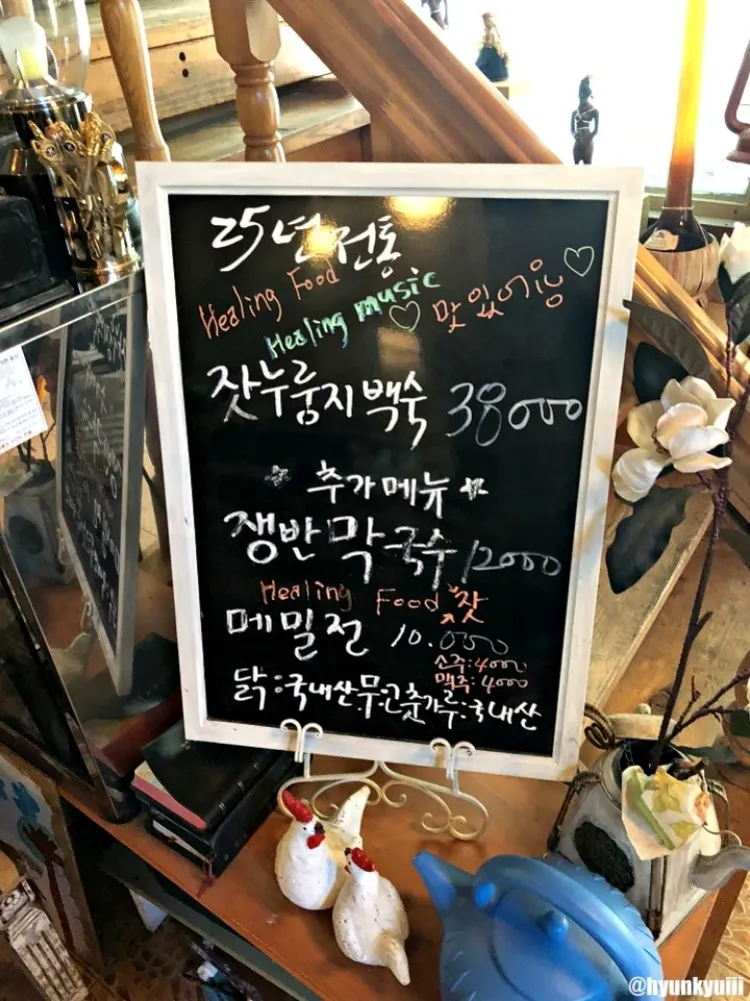 25년 전통
Healing Food
Healing music 맛있어잉
잣누룽지백숙 38000
추가메뉴
쟁반막국수 12000
Healing Food 잣
메밀전 10.000
소주:4000
맥주:4000
닭:국내산 무:고춧가루:국내산
@hyunkyuiii